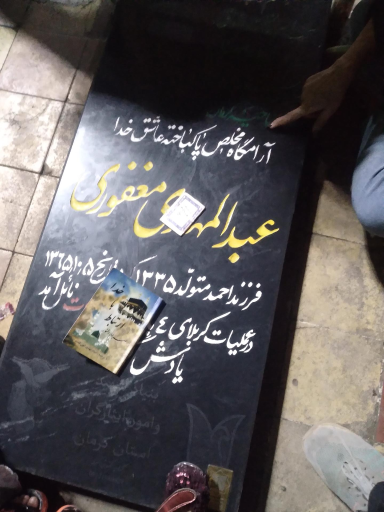 آرامگاه مخلص پاکباخته عاشق خدا
عبدالمهدی مغفوری
فرزند احمد متولد ۱۳۳۵ تاریخ ۱۳۶۵/۱۰/۵
در عملیات کربلای ۴ نائل آمد
یادش
بنیاد
و امور ایثارگران
استان کرمان